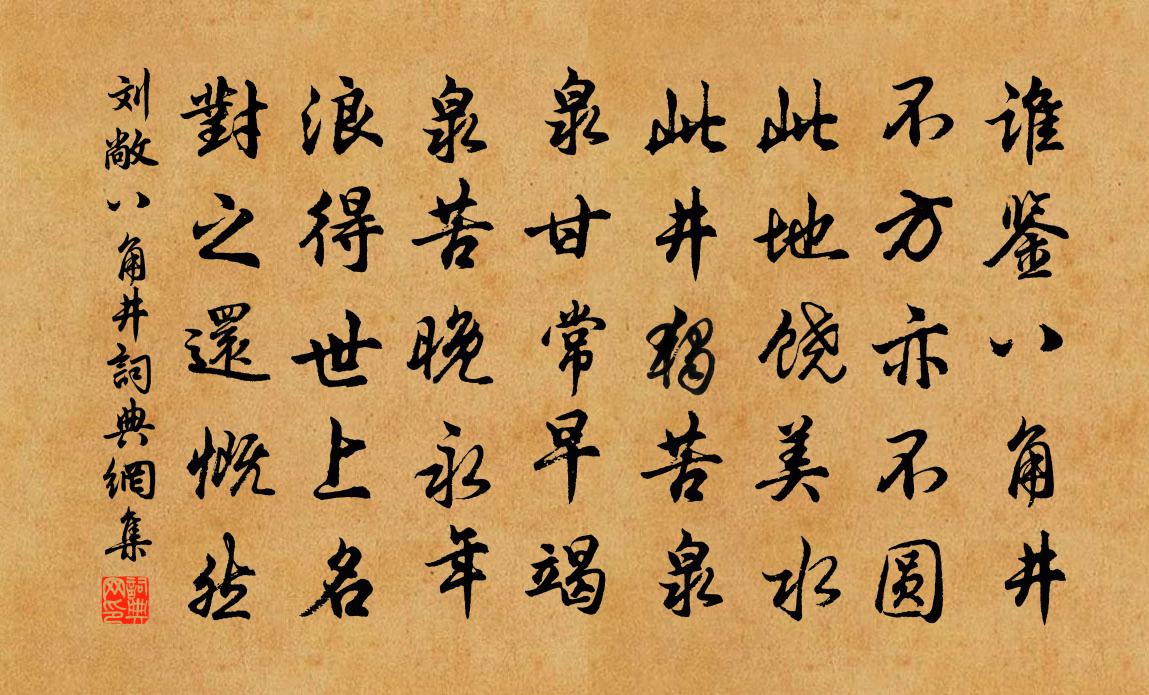 谁鉴八角井
不方亦不圆
此地饶美水
此井独苦泉
泉甘常早竭
泉苦晚永年
浪得世上名
對之還慨然
刘敞八角井詞典網集
詞典网印